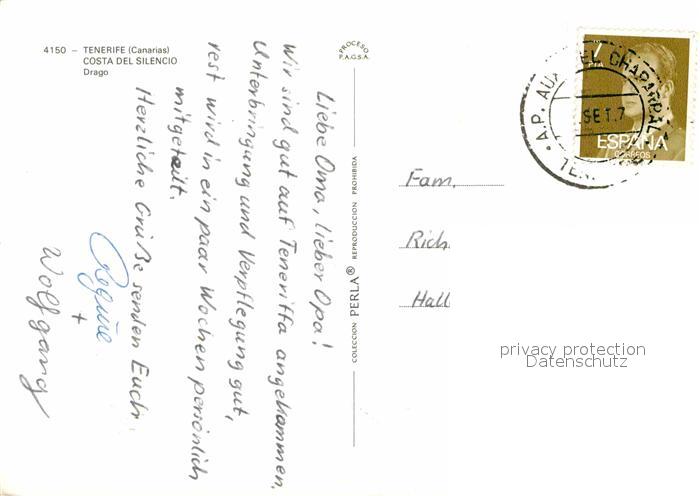 4150 – TENERIFE (Canarias)
COSTA DEL SILENCIO
Drago
Liebe Oma, lieber Opa!
Wir sind gut auf Teneriffa angekommen,
Unterbringung und Verpflegung gut,
rest wird in ein paar Wochen persönlich
mitgeteilt.
Herzliche Grüße senden Euch
Regine
+
Wolfgang
PROCESO
P.A.G.S.A.
COLECCION PERLA® REPRODUCCION PROHIBIDA
7
PTA
ESPAÑA
CORREOS
A.P. AUX. DEL CHAPARRAL
SET. 7
Fam.
Rich
Hall
privacy protection
Datenschutz